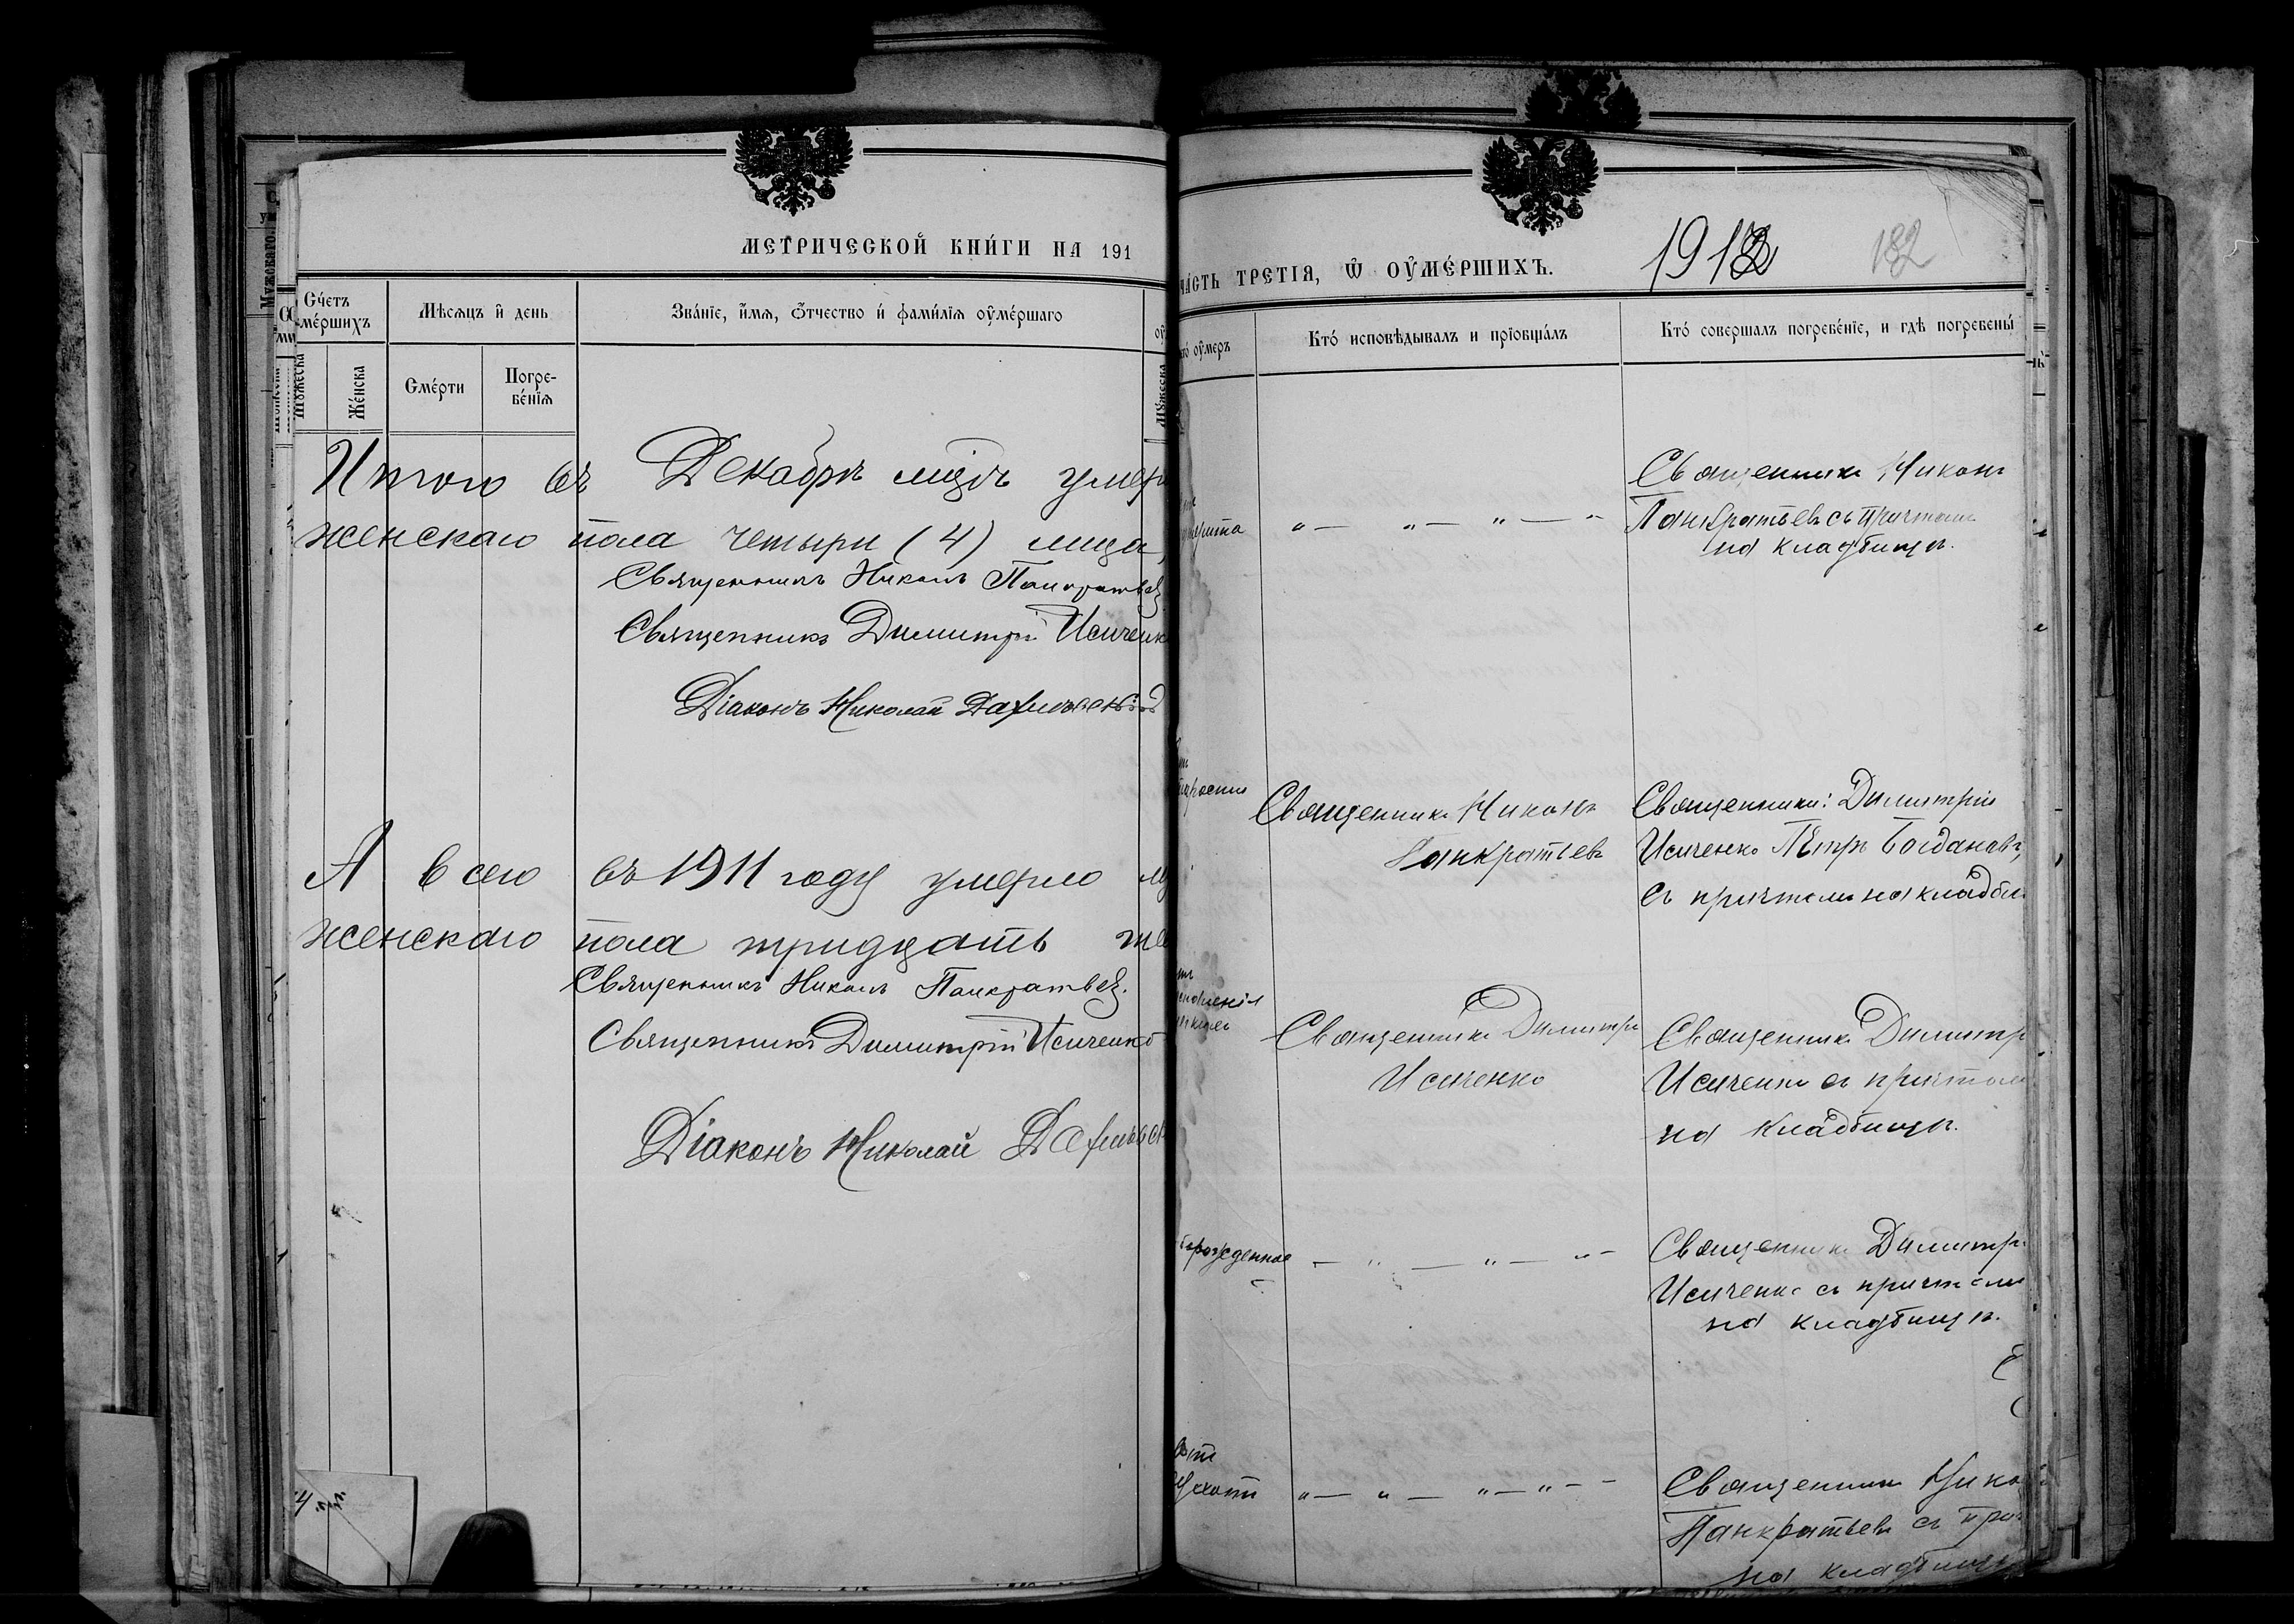 МЕТРИЧЕСКОЙ КНИ́ГИ НА 191
Сче́тъ
ме́ршихъ
Мѣсѧцъ и҆ день
Зва́нїе, и҆́мѧ, ѻ҆́тчество и҆ фами́лїѧ оу҆ме́ршаго
Мꙋ́жеска
Же́нска
Сме́рти
Погре-
бе́нїѧ
Итого въ Декабрѣ мцѣ умер
женскаго пола четыри (4) лица,
Священникъ Никонъ Панкратьев
Священникъ Димитрій Исиченк
Діаконъ Николай
А всего въ 1911 году умерло му
женскаго пола тридцать
Священникъ Никонъ Панкратьев.
Священникъ Димитрій Исиченко
Діаконъ Николай
ЧА́СТЬ ТРЕТІѦ, Ѿ ОУ҆МЕ́РШИХЪ.
1912
182
оу҆меръ
Кто́ и҆сповѣ́дывалъ и҆ прїобща́лъ
Кто́ соверша́лъ погребе́нїе, и҆ гдѣ̀ погребены̀
Священникъ Никонъ
Панкратьевъ съ причтомъ
на кладбищѣ.
Священникъ Никонъ
Панкратьевъ
Священники: Димитрій
Исиченко Петръ Богдановъ,
съ причтомъ на кладби
Священникъ Димитрі
Исиченко
Священникъ Димитр
Исиченко съ причтом
на кладбищѣ.
Священникъ Димитр
Исиченко съ причтом
на кладбищѣ.
Священникъ Нико
Панкратьевъ съ при
на кладбищѣ